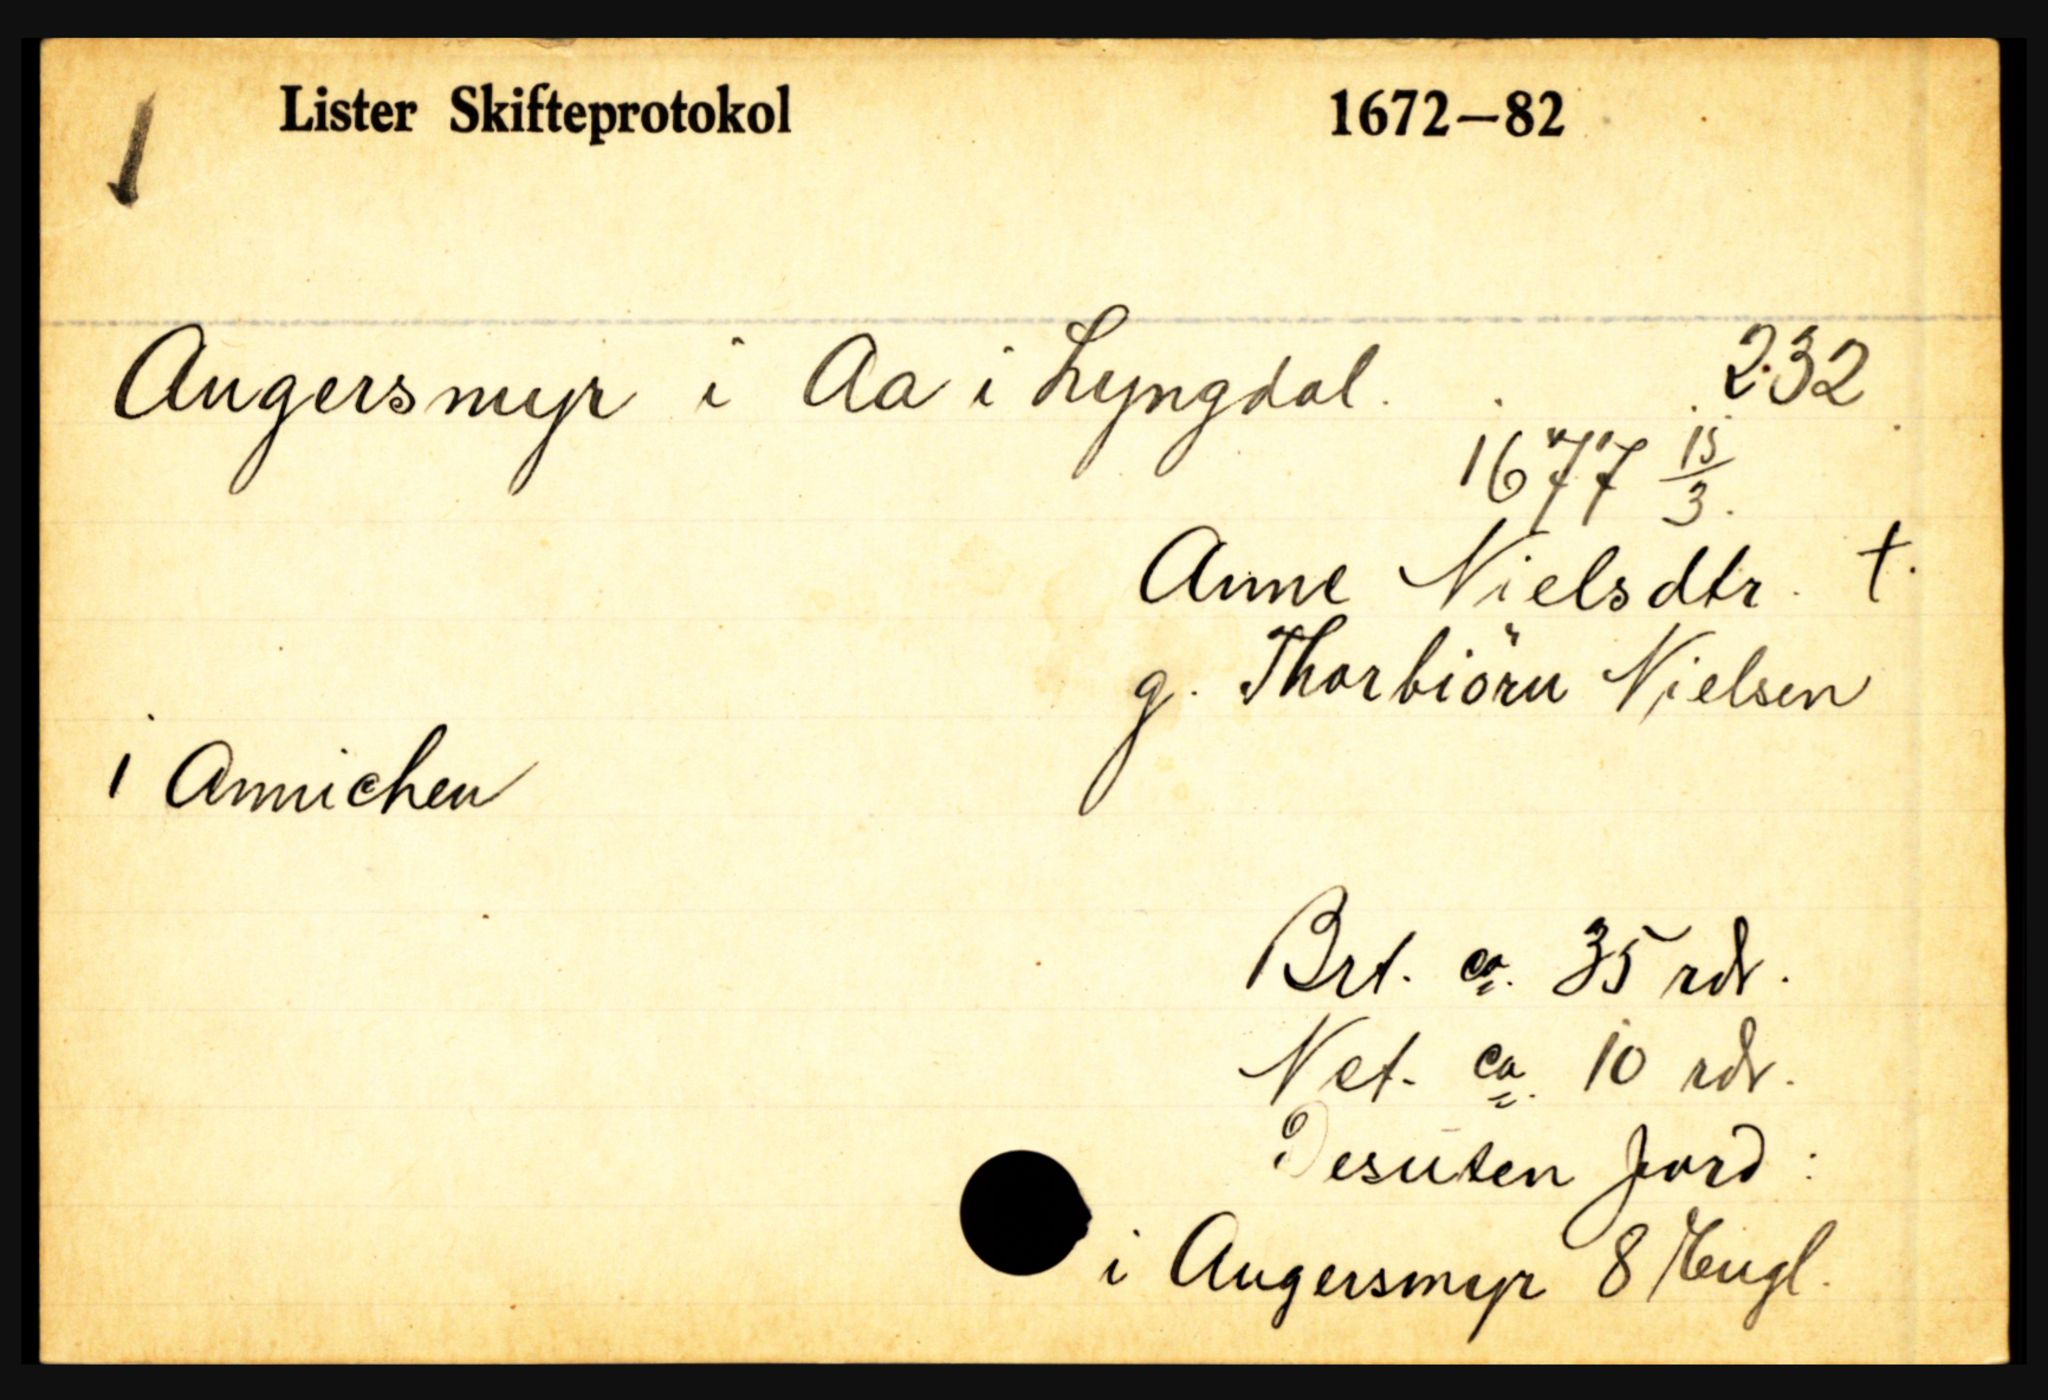 Lister Skifteprotokol 1672–82
Augersmyr i Aa i Lyngdal. 232
1677 15/3.
Anne Nielsdtr. †.
g. Thorbiörn Nielsen
1 Annichen
Brt. ca. 35 rdr.
Net. ca. 10 rdr.
Desuten jord:
i Augersmyr 8 Engl.